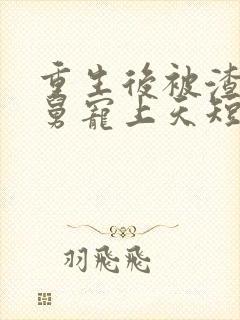 重生後被渣
舅寵上天短
羽飛飛